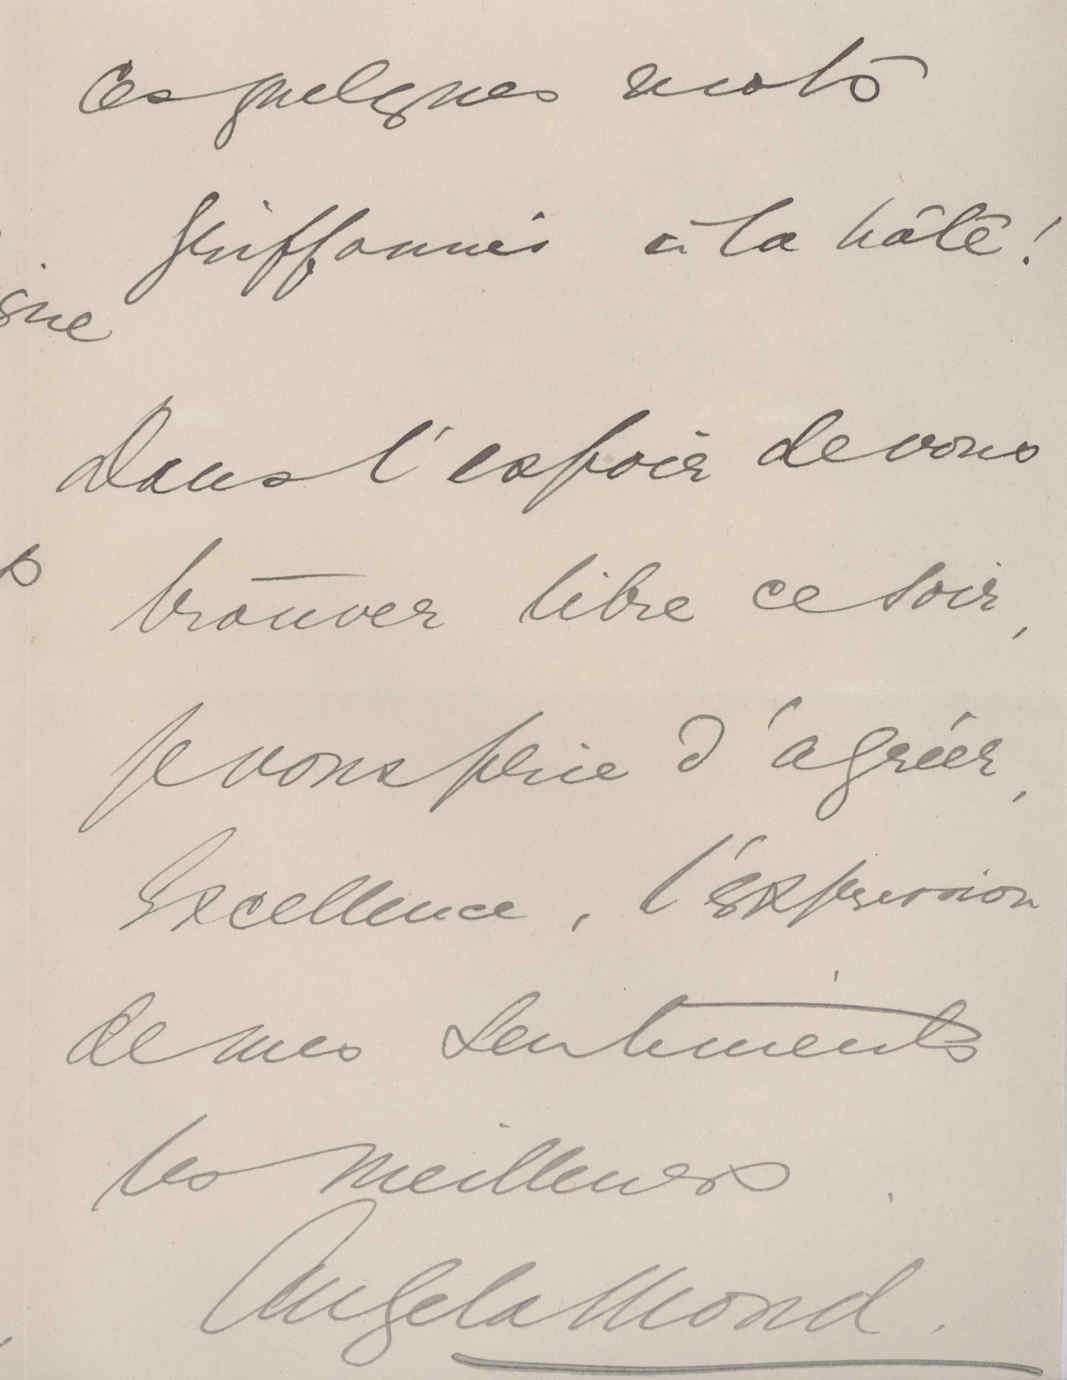 Ces quelques mots
griffonnés à la hâte!
Dans l'espoir de vous
trouver libre ce soir,
je vous prie d'agréer,
Excellence, l'expression
de mes sentiments
les meilleurs.
Angela Mond.